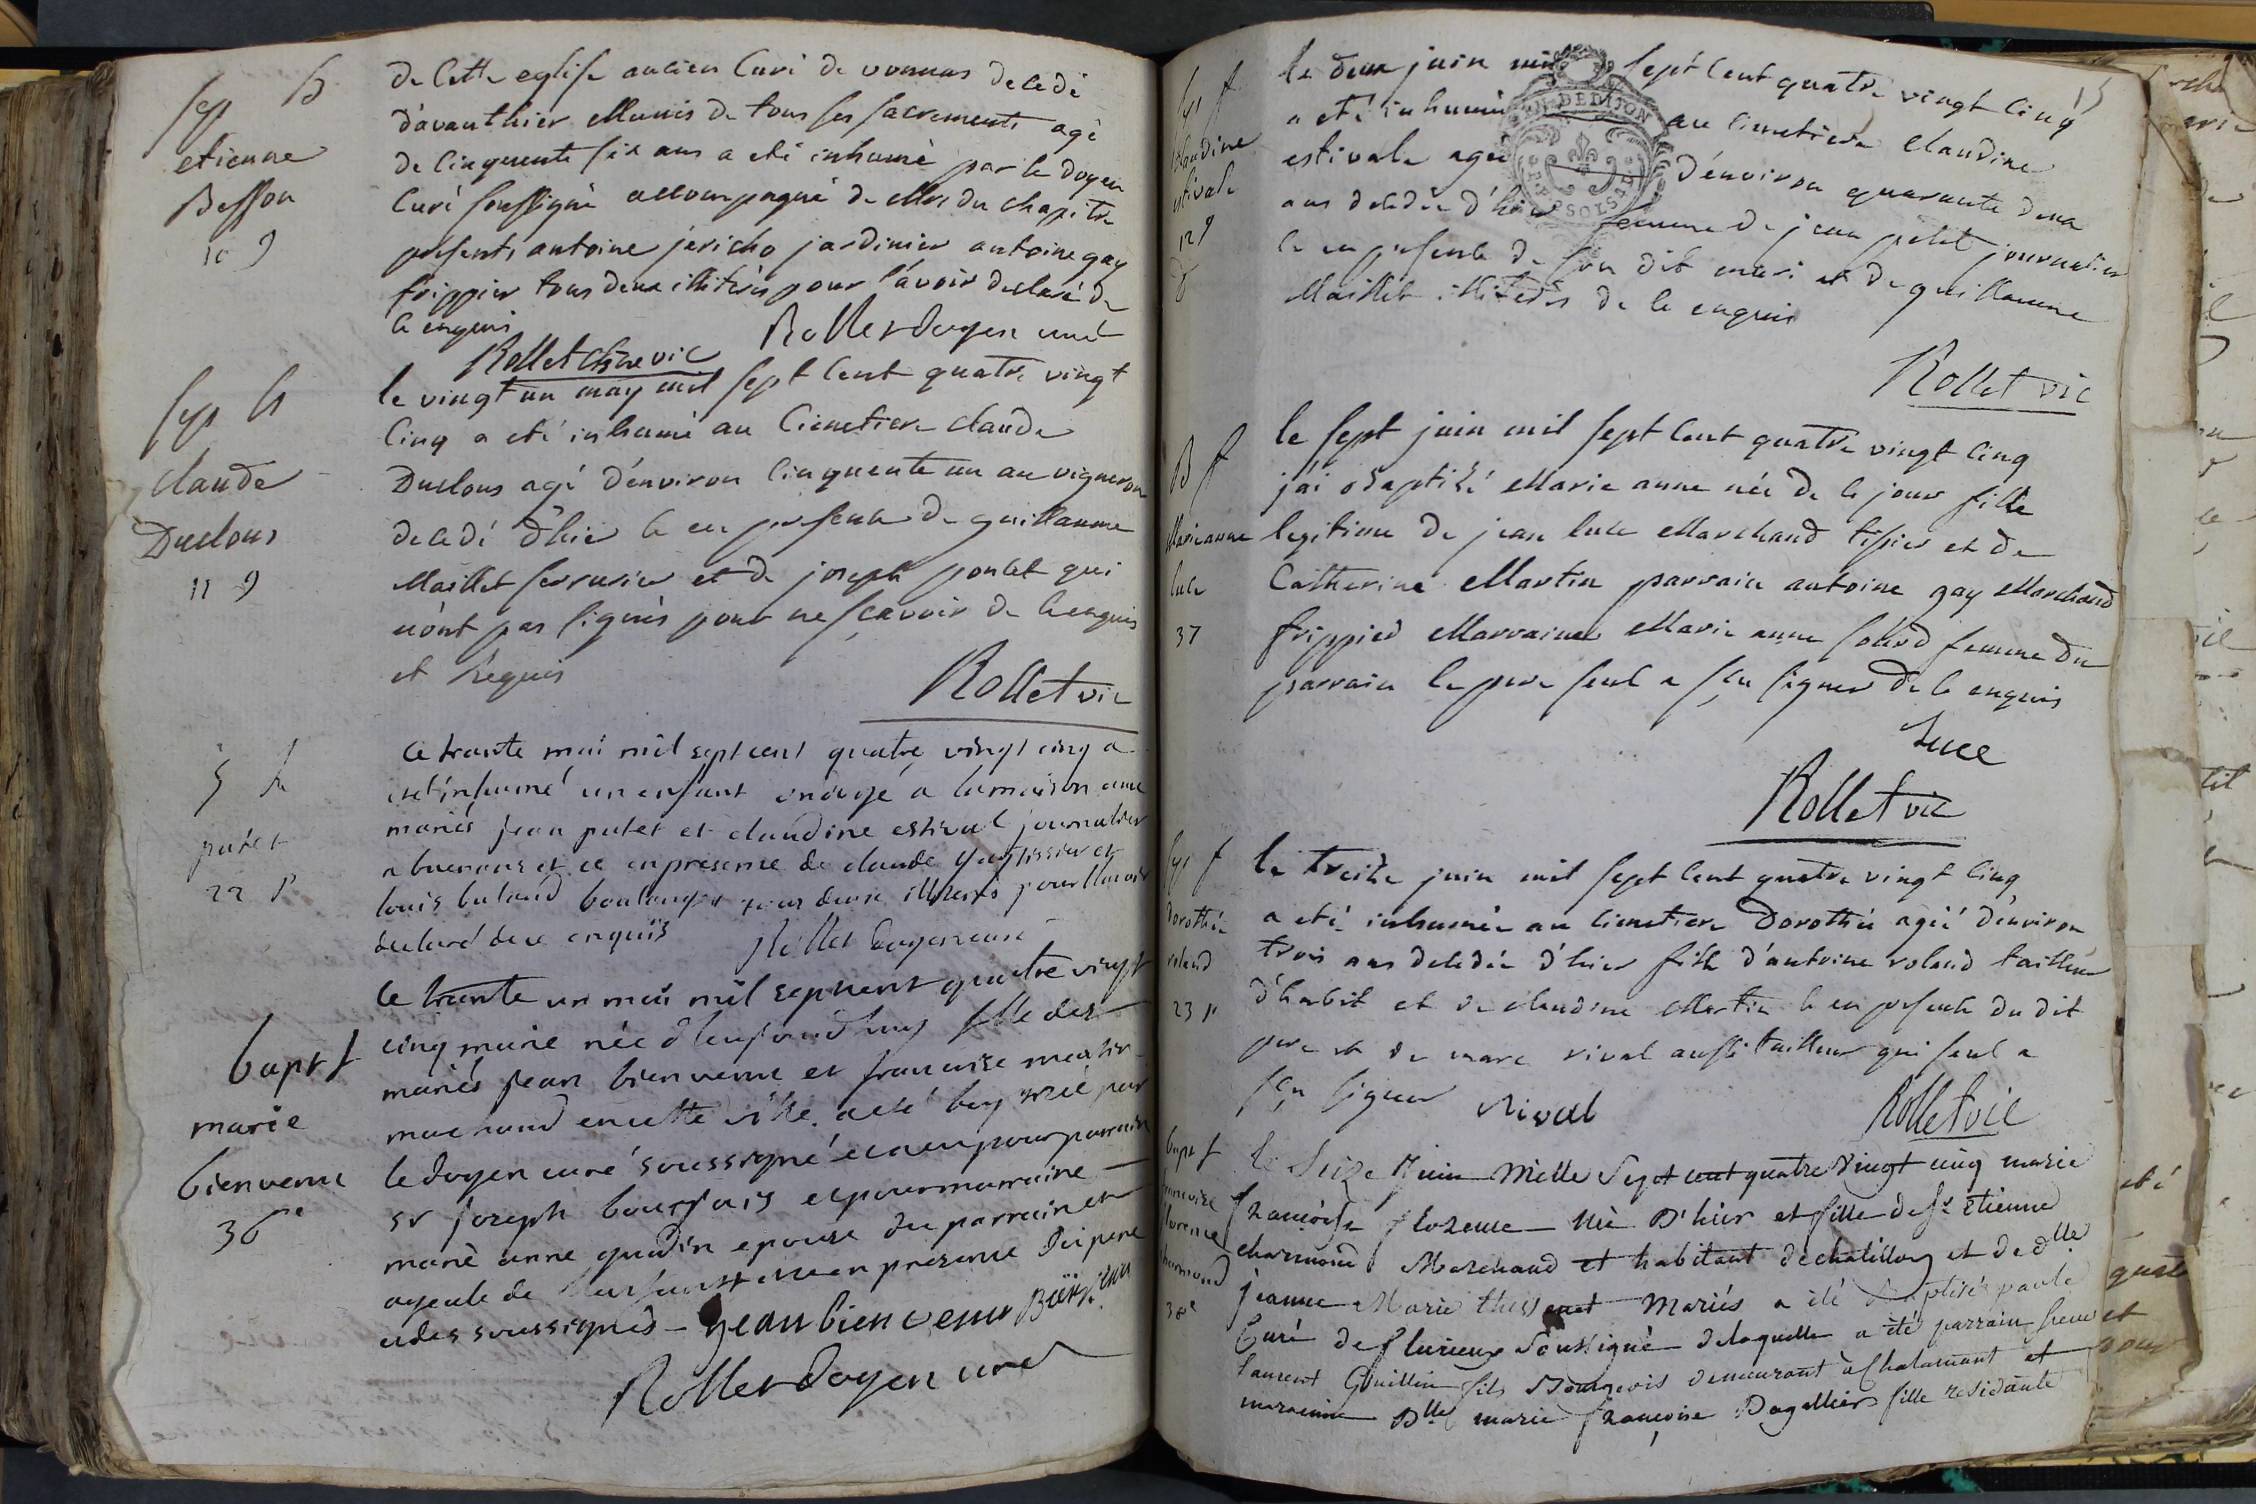 sep h
etienne
Besson
10 g
de Cette eglise ancien Curé de vonnas decedé
d'avanthier Munis de tous ses sacrements agé
de Cinquente six ans a eté inhumé par le doyen
Curé soussigné accompagné de Mrs du chapitre
presents antoine jericho jardinier antoine gay
frippier tous deux illiterés pour l'avoir declaré de
ce enquis
Rollet doyen curé
Rollet chne vic
sep h
claude
Duclous
11 g
le vingt un may mil sept cent quatre vingt
Cinq a eté inhumé au Cimetiere claude
Duclous agé d'environ Cinquente un an vigneron
decedé d'hier ce en presence de guillaume
Maillet serrurier et de joseph poulet qui
n'ont pas signés pour ne sçavoir de ce enquis
et Requis
Rollet vic
s h
putet
22 p
Ce trante mai mil sept cent quatre vingt cinq a
eté inhumé un enfant ondoyé a la maison aux
mariés jean putet et claudine estival journalier
a buenans et ce en presence de claude gay tissier et
louis buland boulanger tous deux illiterés pour l'avoir
declaré de ce enquis Rollet doyen curé
bapt f
marie
bienvenu
36e
Ce trante un mai mil sept cent quatre vingt
cinq marie née d'aujourd'huy fille des
mariés jean bienvenu et francoise martin
marchand en cette ville a eté baptizé par
le doyen curé soussigné et a eu pour parrain
sr joseph bourjois et pour marraine
marie anne gudin epouse du parrain et
ayeule de l'enfant et ce en presence du pere
et des soussignés - jean bien venu Bourjois
Rollet doyen curé
15
sep f
Claudine
estivale
12 g
le deux juin mil sept cent quatre vingt Cinq
a eté inhumée au Cimetiere Claudine
estivale agée d'environ quarante deux
ans decedée d'hier femme de jean putet journalier
ce en presence de son dit mari et de guillaume
Maillet illiterés de ce enquis
Rollet vic
B f
Marie anne
luce
37
le sept juin mil sept cent quatre vingt Cinq
j'ai Baptisé Marie anne née de ce jour fille
legitime de jean luce Marchand tisier et de
Catherine Martin parrain antoine gay Marchand
frippier Marraine Marie anne sourd femme du
parrain le pere seul a sçu signer de ce enquis
Luce
Rollet vic
sep f
Dorothée
roland
23 p
le treize juin mil sept cent quatre vingt Cinq
a eté inhumée au Cimetiere Dorothée agée d'environ
trois ans decedée d'hier fille d'antoine roland tailleur
d'habit et de claudine Martin ce en presence du dit
pere et de marc rival aussi tailleur qui seul a
sçu signer Rival Rollet vic
bapt f
francoise
florence
charmond
38e
le Seize Juin Mille Sept cent quatre Vingt cinq marie
Françoise Florence Née D'hier et fille de sr Etienne
charmond Marchand et habitant de chatillon et de dlle
jeanne Marie Mariés a été Baptisée par le
Curé de flurieux Soussigné de laquelle a été parrain sieur
laurent Guillin fils Bourgeois demeurant à chalamont et
maraine Dlle marie Françoise Dagallier fille residante